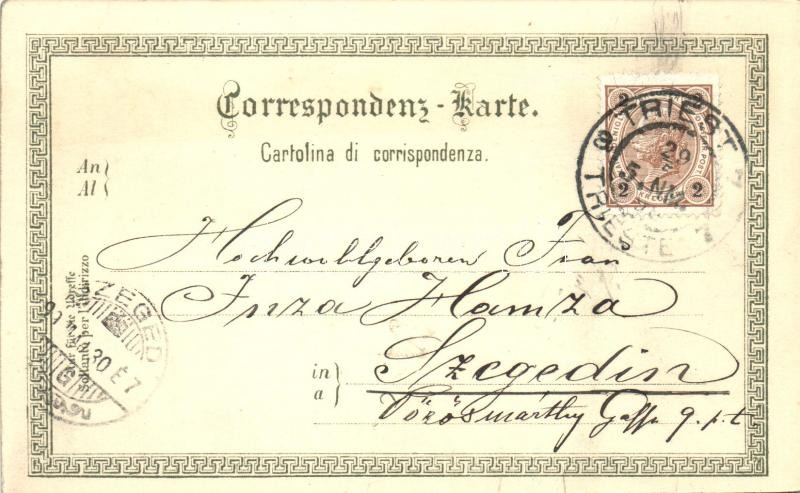 Correspondenz-Karte.
Cartolina di corrispondenza.
An
Al
Nur für die Adresse
Soltanto per l'indirizzo
TRIEST
TRIESTE
8
29
5. NM.
2 2
Hochwohlgeboren Frau
Inza Hamza
in
a
Szegedin
Vörösmárthy Gasse 9. p. t
SZEGED
30 É 7